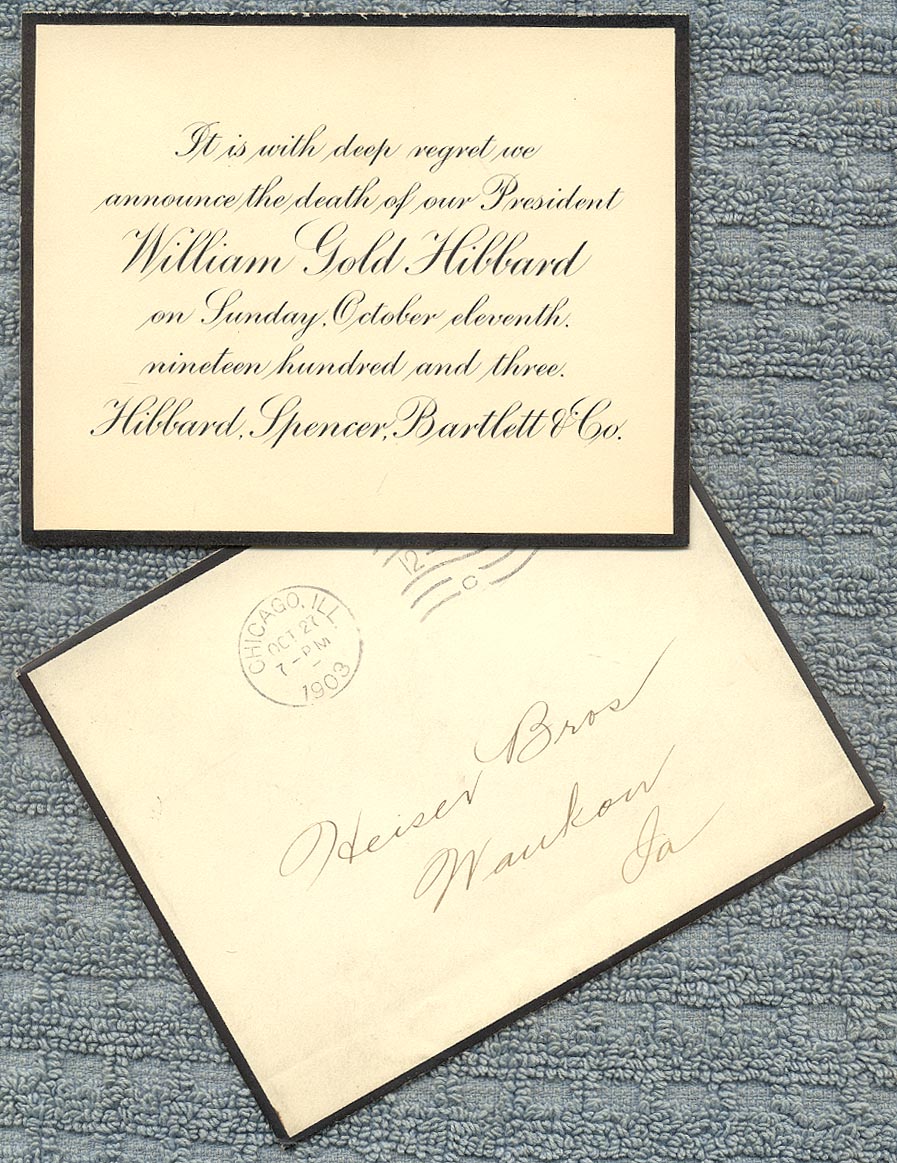 It is with deep regret we
announce the death of our President
William Gold Hibbard
on Sunday, October eleventh,
nineteen hundred and three.
Hibbard, Spencer, Bartlett & Co.
12
C
CHICAGO, ILL.
OCT 27
7-PM
1903
Heiser Bros
Waukon
Ia